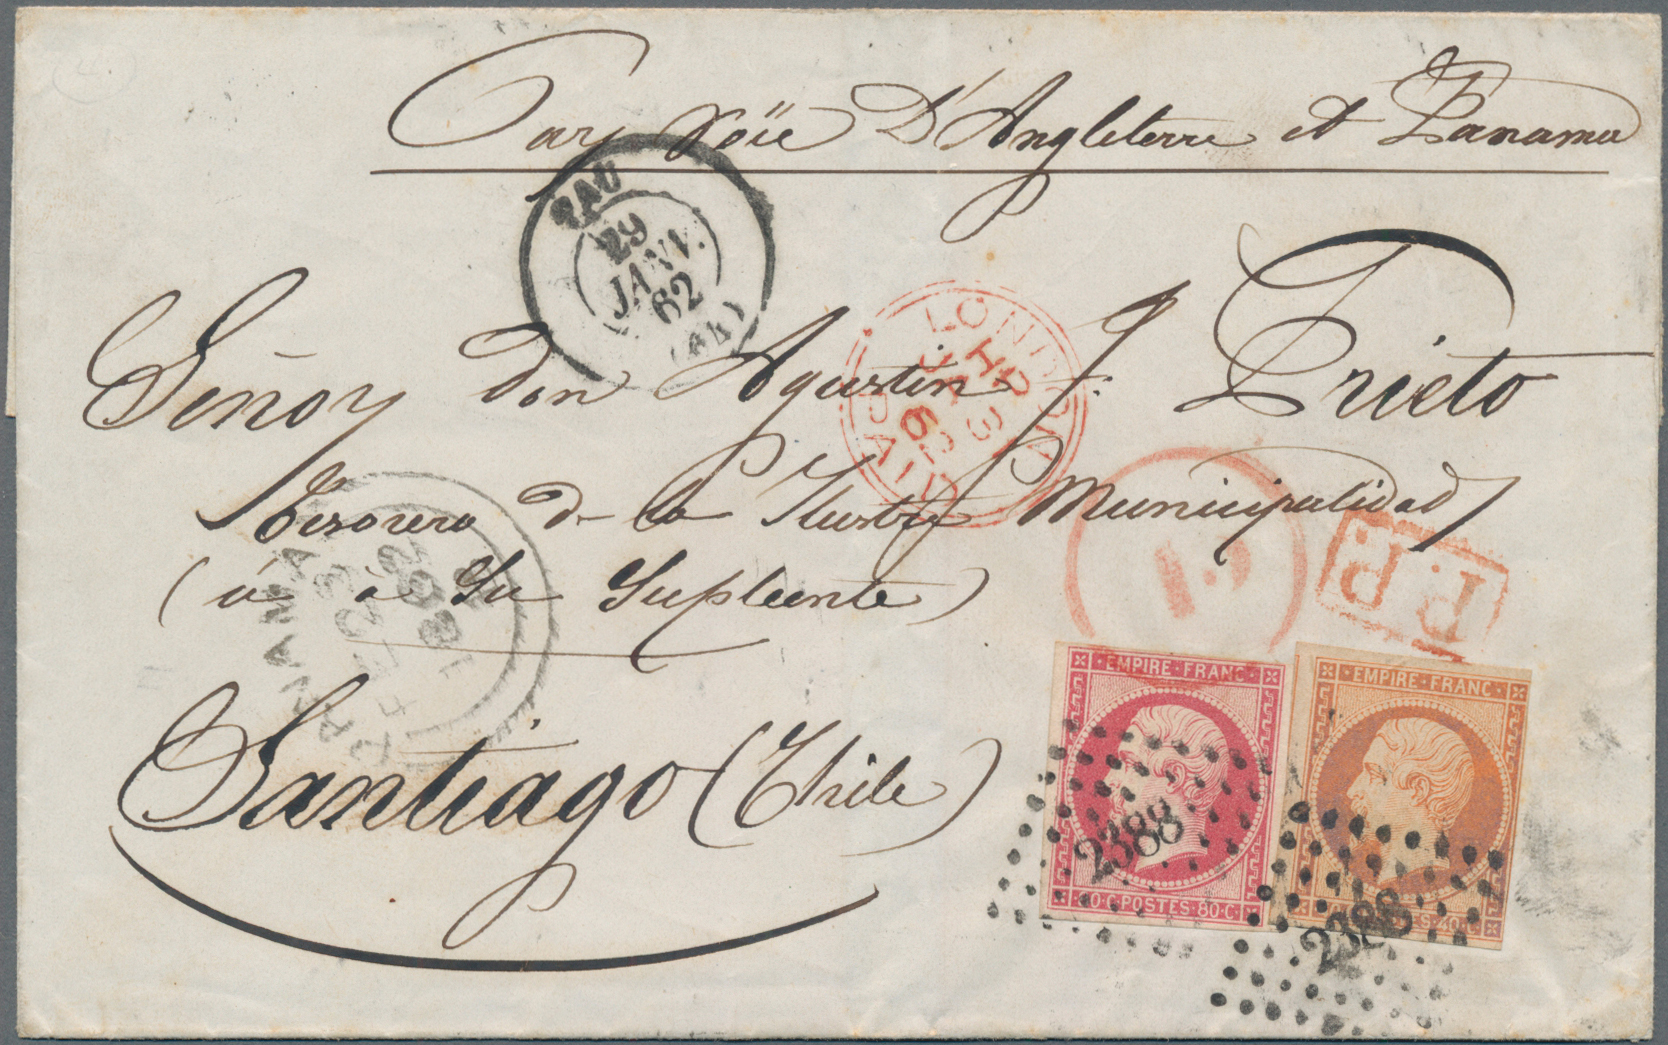 (4.)
Par Voïe D'Angleterre et Panama
PAU
29
JANV.
62
(64)
LONDON
HP
JA 3
62
PAID
Señor don Agustin J. Prieto
Tesorero de la Ilustre Municipalidad
(ú à Su Supleente)
PANAMA
1862
P.P.
Santiago (Chile)
EMPIRE·FRANC·
80·C·POSTES·80·C·
2388
EMPIRE·FRANC·
40·C·
2388